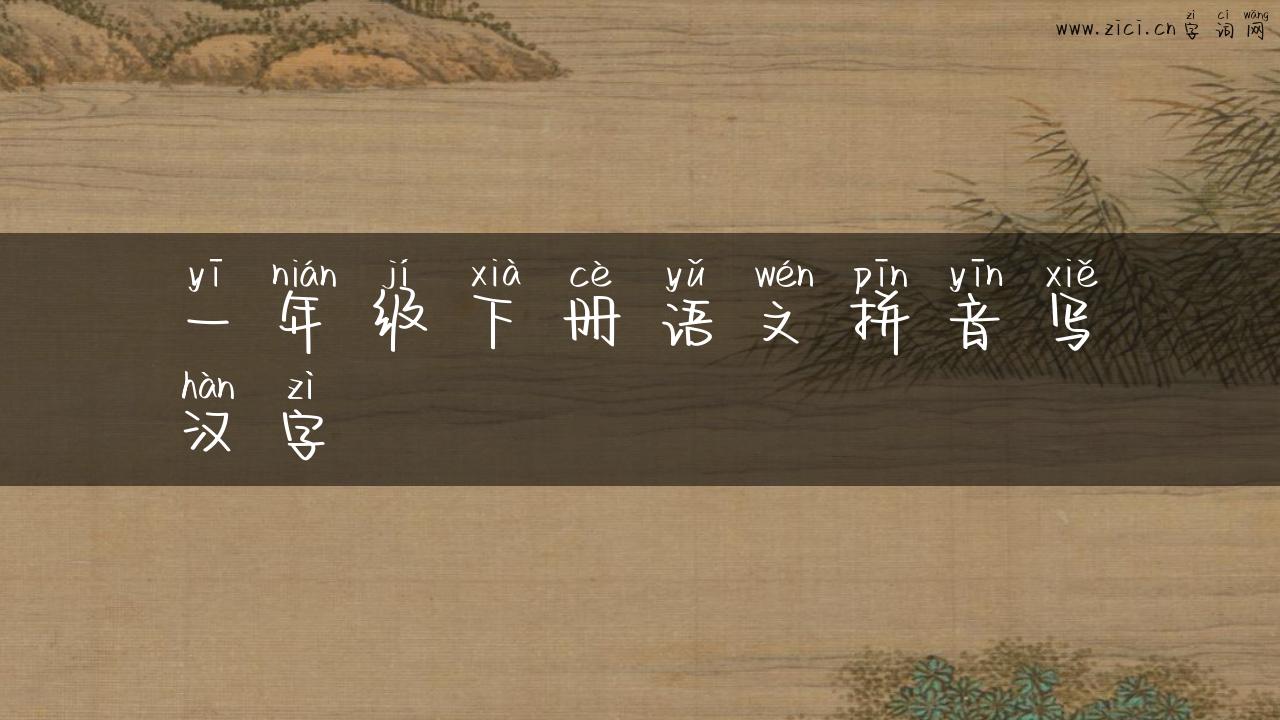 zì cí wǎng
www.zici.cn 字 词 网
yī nián jí xià cè yǔ wén pīn yīn xiě
一 年 级 下 册 语 文 拼 音 写
hàn zì
汉 字